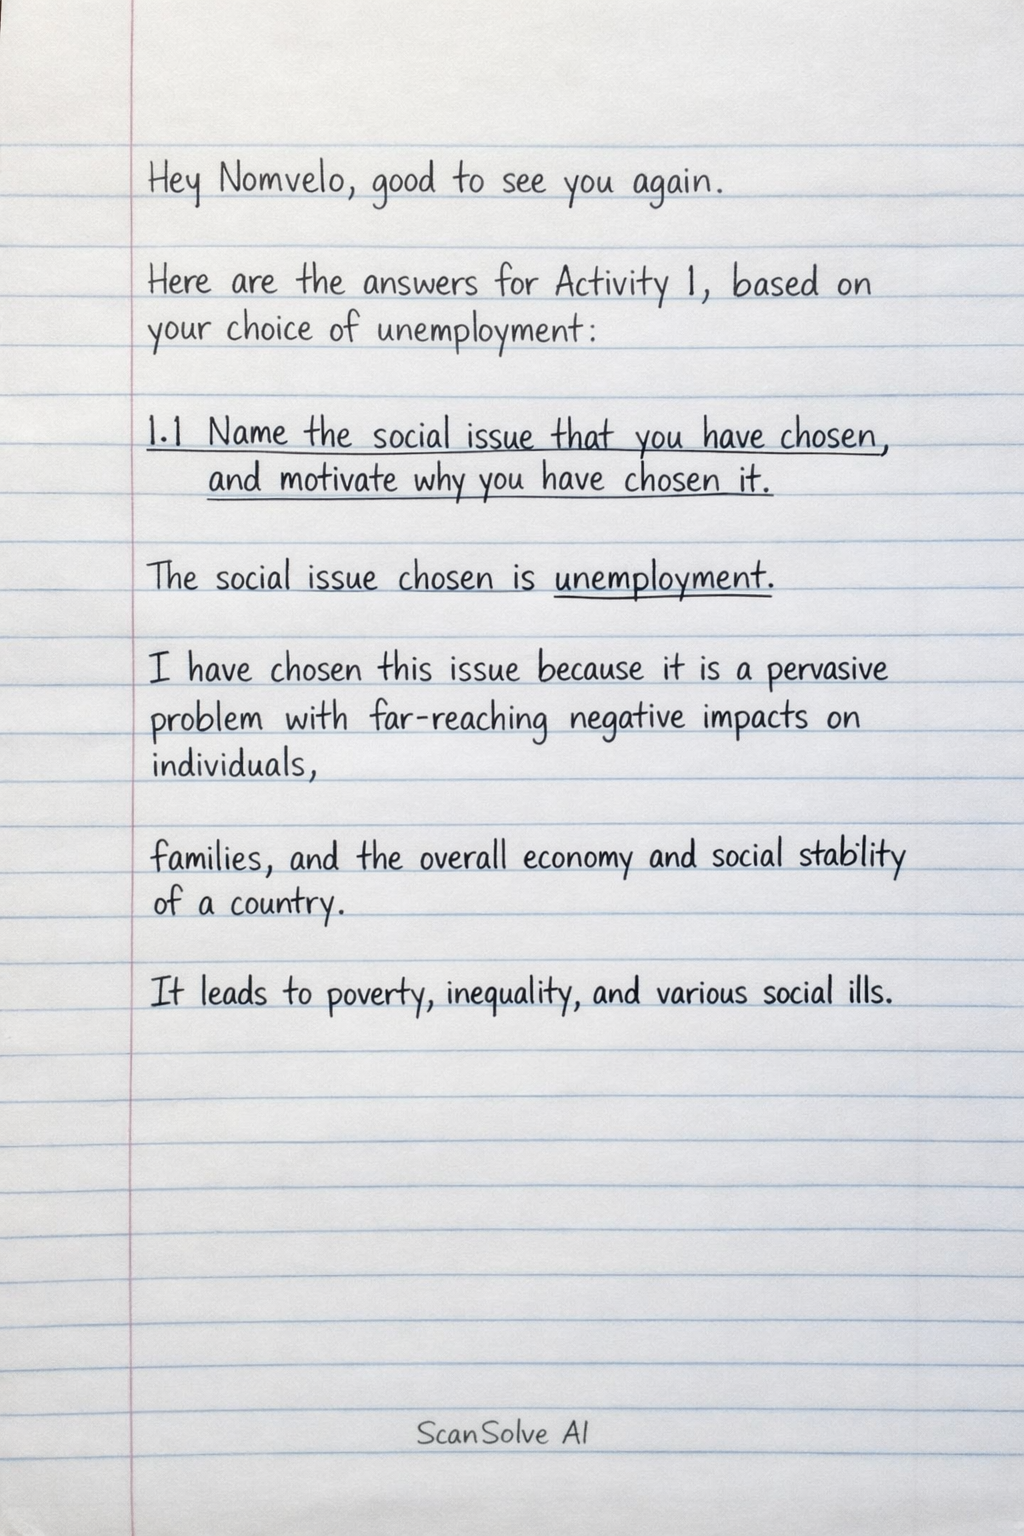 Hey Nomvelo, good to see you again.
Here are the answers for Activity 1, based on
your choice of unemployment:
1.1 Name the social issue that you have chosen,
and motivate why you have chosen it.
The social issue chosen is unemployment.
I have chosen this issue because it is a pervasive
problem with far-reaching negative impacts on
individuals,
families, and the overall economy and social stability
of a country.
It leads to poverty, inequality, and various social ills.
ScanSolve AI